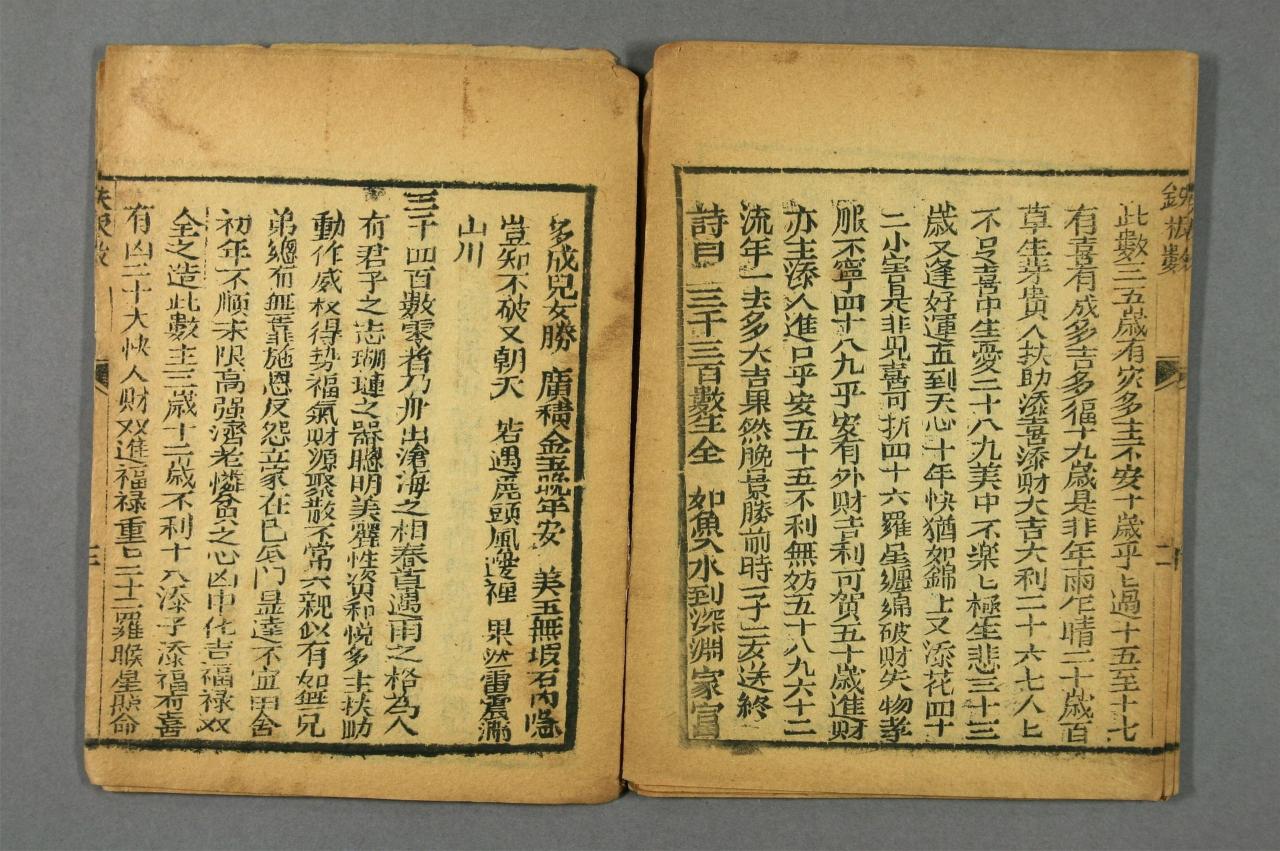 鐵板數
此數三五歲有灾多主不安十歲平乚過十五至十七
有喜有成多吉多福十九歲是非年雨乍晴二十歲百
草生芽貴人扶助添喜添財大吉大利二十六七八上
不足喜中生憂二十八九美中不楽乚極生悲三十三
歲又逢好運五到天心十年快猶如錦上又添花四十
二小害是非見喜可折四十六羅星纏綿破財失物孝
服不寧四十八九平安有外財吉利可賀五十歲進財
亦主添人進口平安五十五不利無妨五十八九六十二
流年一去多大吉果然晚景勝前時二子二女送終
詩曰 三千三百數生全 如魚入水到深淵家富
二
多成兒女勝 廣積金玉晚年安 美玉無瑕石内隱
豈知不破又朝天 若遇虎頭風邊裡 果然雷震滿
山川
三千四百數零者乃舟出滄海之相春苗遇雨之格為人
有君子之志瑚璉之器聰明美麗性資和悦多主扶助
動作威权得势福氣財源聚散不常六親似有如無兄
弟總有無靠施恩反怨立家在己反門显達不宜田舍
初年不順末限高强濟老憐貧之心凶中化吉福禄双
全之造此數主三歲十二歲不利十八添子添福有喜
有凶二十大快人財双進福禄重乚三十二羅睺星照命
三